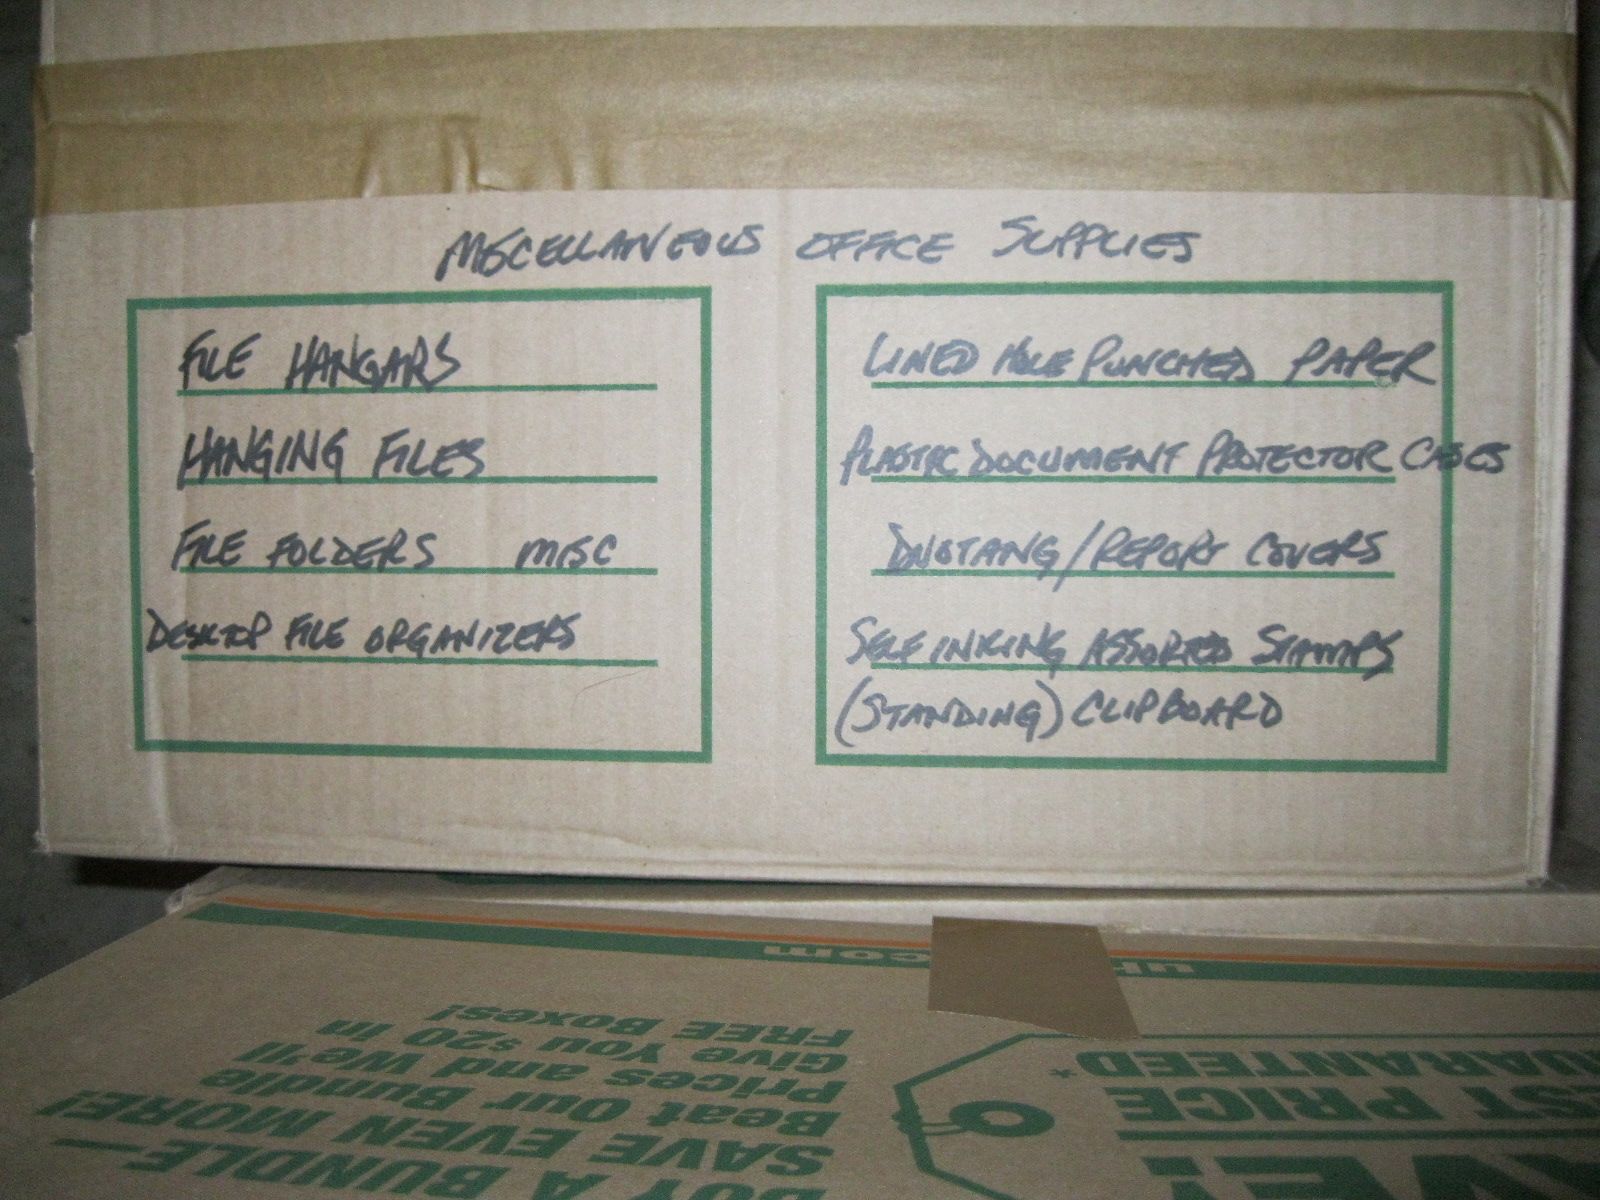 MISCELLANEOUS OFFICE SUPPLIES
FILE HANGARS
HANGING FILES
FILE FOLDERS MISC
DESKTOP FILE ORGANIZERS
LINED HOLE PUNCHED PAPER
PLASTIC DOCUMENT PROTECTOR CASES
DUOTANG/REPORT COVERS
SELF INKING ASSORTED STAMPS
(STANDING) CLIPBOARD
BUNDLE—
SAVE EVEN MORE!
Beat Our Bundle
Prices and We'll
Give You $20 in
FREE Boxes!
PRICE
.com